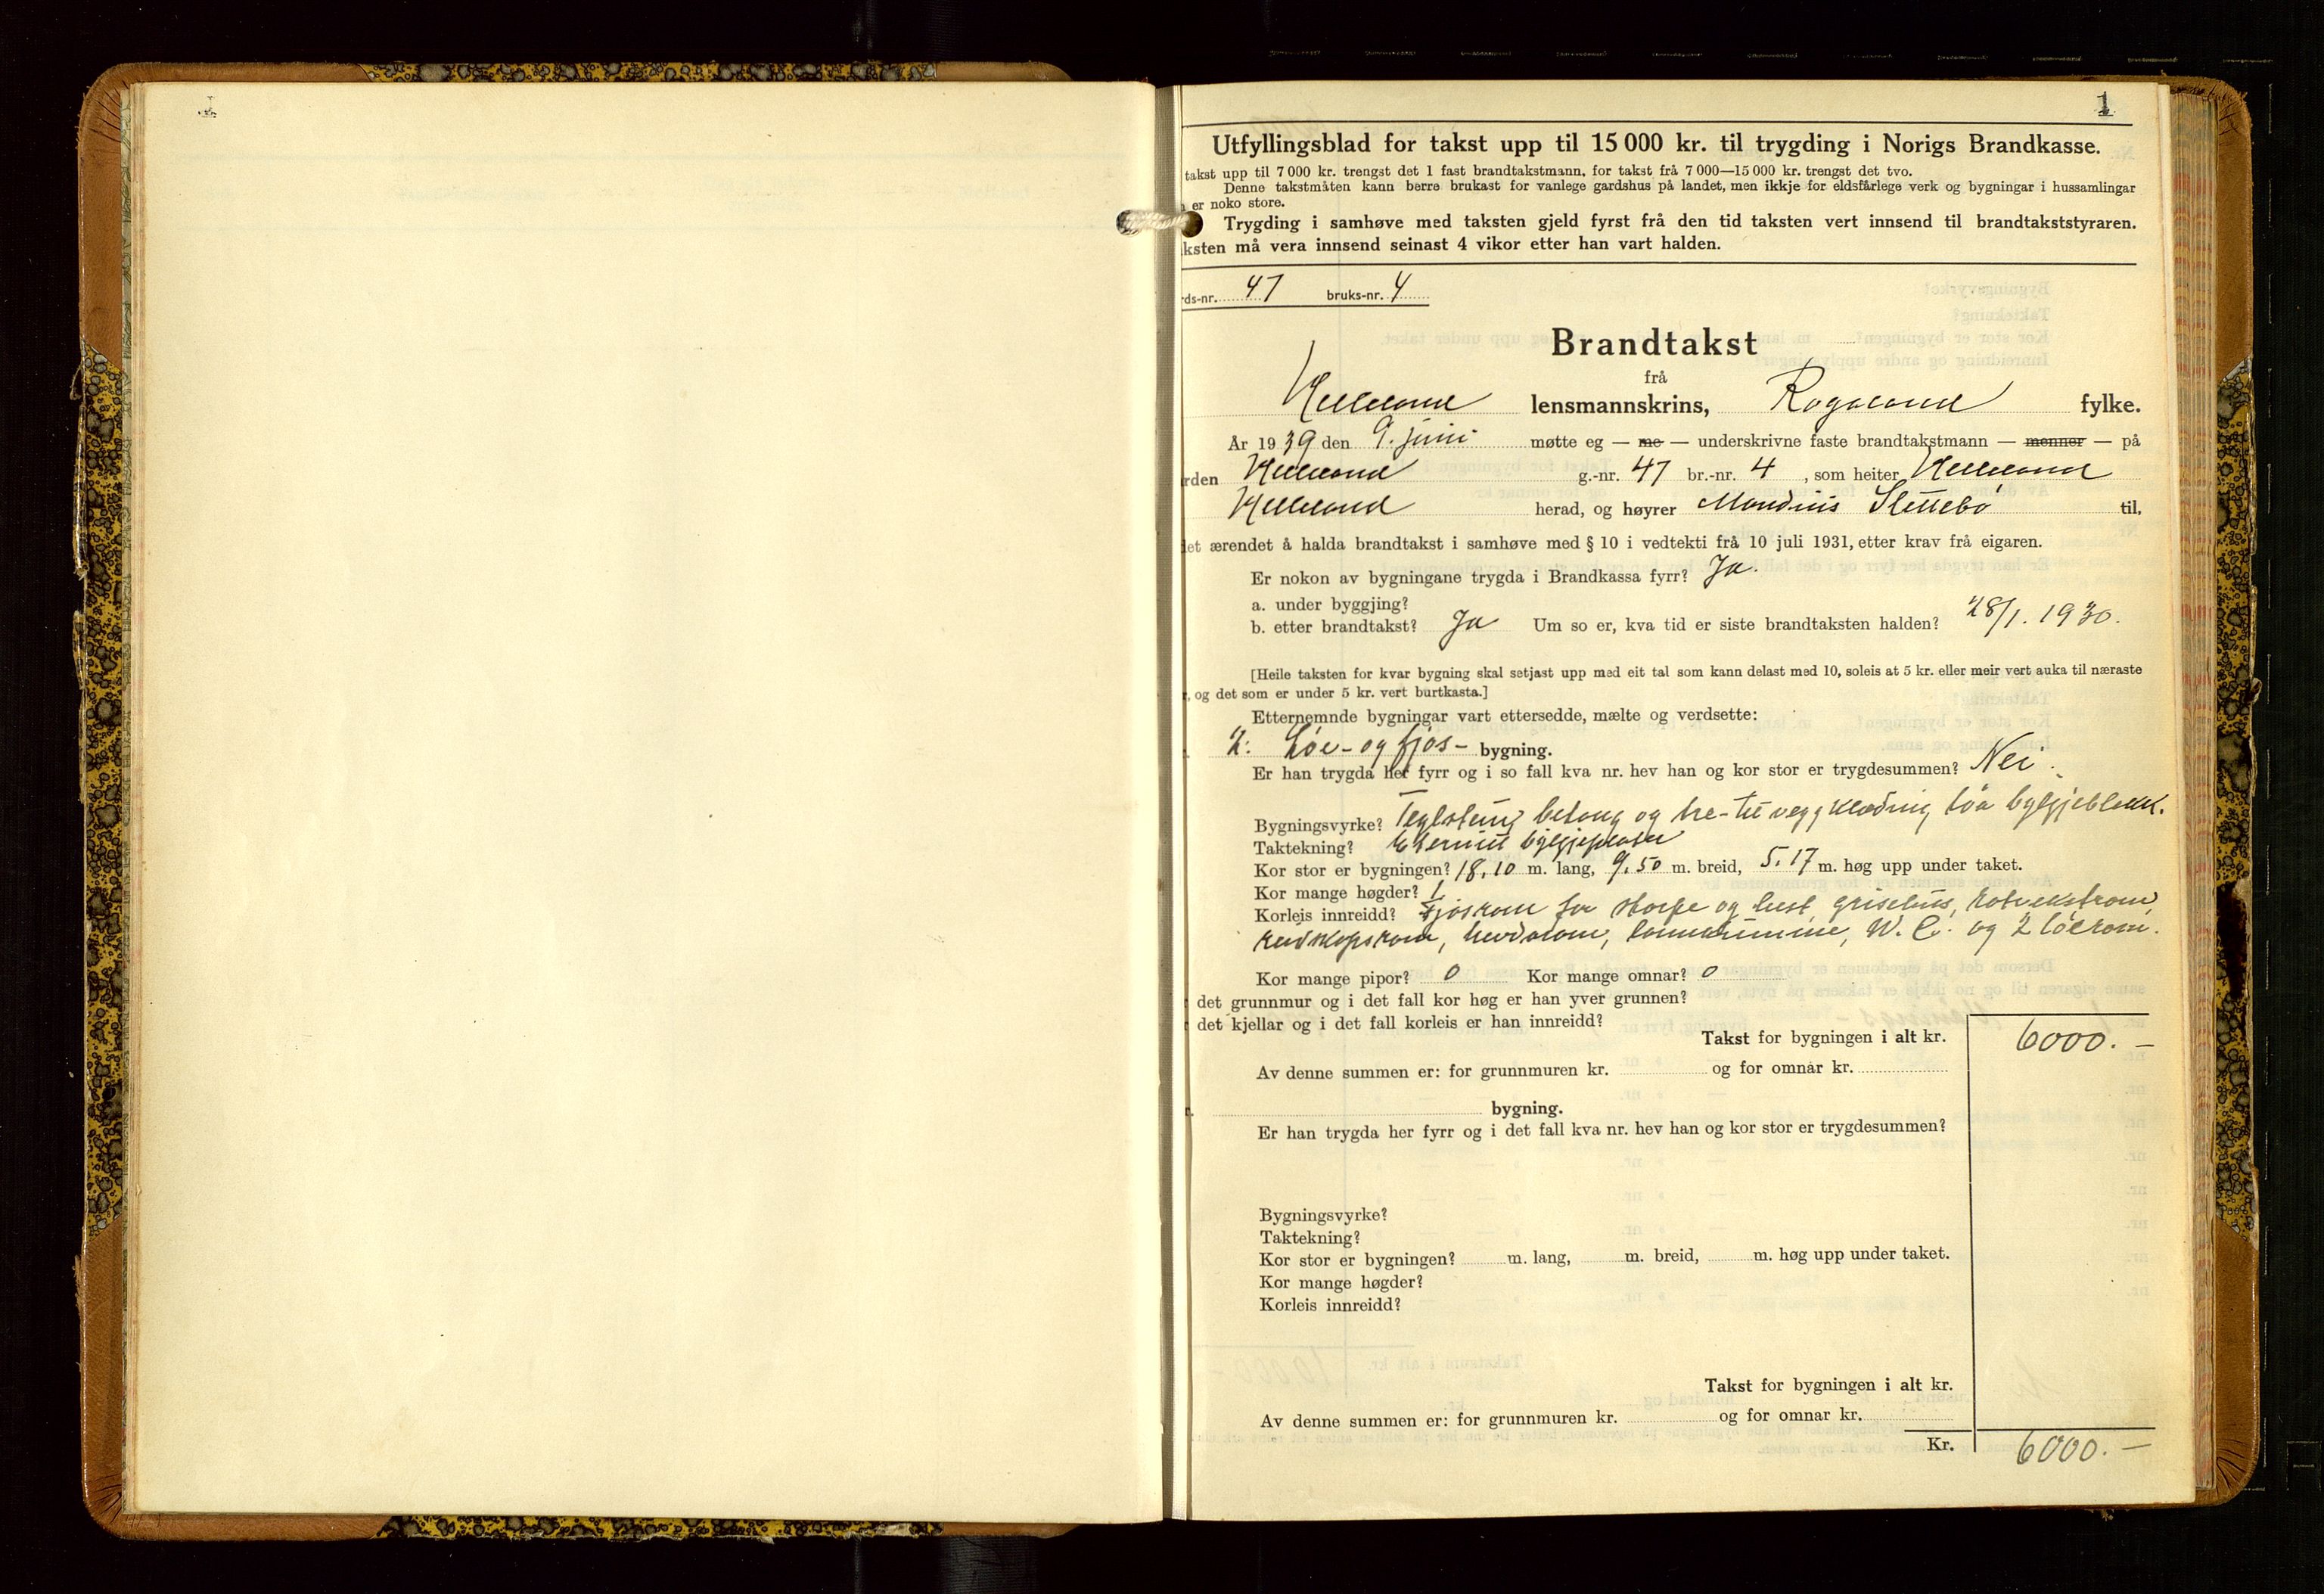 1
Utfyllingsblad for takst upp til 15 000 kr. til trygding i Norigs Brandkasse.
takst upp til 7 000 kr. trengst det 1 fast brandtakstmann, for takst frå 7 000—15 000 kr. trengst det tvo.
Denne takstmåten kann berre brukast for vanlege gardshus på landet, men ikkje for eldsfårlege verk og bygningar i hussamlingar
er noko store.
Trygding i samhøve med taksten gjeld fyrst frå den tid taksten vert innsend til brandtakststyraren.
ksten må vera innsend seinast 4 vikor etter han vart halden.
rds-nr. 47 bruks-nr. 4
Brandtakst
frå
Helleland lensmannskrins, Rogaland fylke.
År 1939 den 9. juni møtte eg — me — underskrivne faste brandtakstmann — menner — på
rden Helleland g.-nr. 47 br.-nr. 4, som heiter Helleland
Helleland herad, og høyrer Mandius Slettebø til,
et ærendet å halda brandtakst i samhøve med § 10 i vedtekti frå 10 juli 1931, etter krav frå eigaren.
Er nokon av bygningane trygda i Brandkassa fyrr? Ja.
a. under byggjing?
b. etter brandtakst? Ja Um so er, kva tid er siste brandtaksten halden? 28/1. 1930.
[Heile taksten for kvar bygning skal setjast upp med eit tal som kann delast med 10, soleis at 5 kr. eller meir vert auka til næraste
, og det som er under 5 kr. vert burtkasta.]
Etternemnde bygningar vart ettersedde, mælte og verdsette:
2. Løe- og fjøs- bygning.
Er han trygda her fyrr og i so fall kva nr. hev han og kor stor er trygdesummen? Nei.
Bygningsvyrke? Teglstein, betong og tre- veggklædning bylgjeblekk.
Taktekning? Eternitt bylgjeplater
Kor stor er bygningen? 18.10 m. lang, 9.50 m. breid, 5.17 m. høg upp under taket.
Kor mange høgder? 1
Korleis innreidd? Fjøsrom for storfe og hest, grisehus, rotvekstrom,
reidskapsrom, W. C. og 2 løerom.
Kor mange pipor? 0 Kor mange omnar? 0
det grunnmur og i det fall kor høg er han yver grunnen?
det kjellar og i det fall korleis er han innreidd?
Takst for bygningen i alt kr. 6000.—
Av denne summen er: for grunnmuren kr. og for omnar kr.
bygning.
Er han trygda her fyrr og i det fall kva nr. hev han og kor stor er trygdesummen?
Bygningsvyrke?
Taktekning?
Kor stor er bygningen? m. lang, m. breid, m. høg upp under taket.
Kor mange høgder?
Korleis innreidd?
Takst for bygningen i alt kr.
Av denne summen er: for grunnmuren kr. og for omnar kr.
Kr. 6000.—